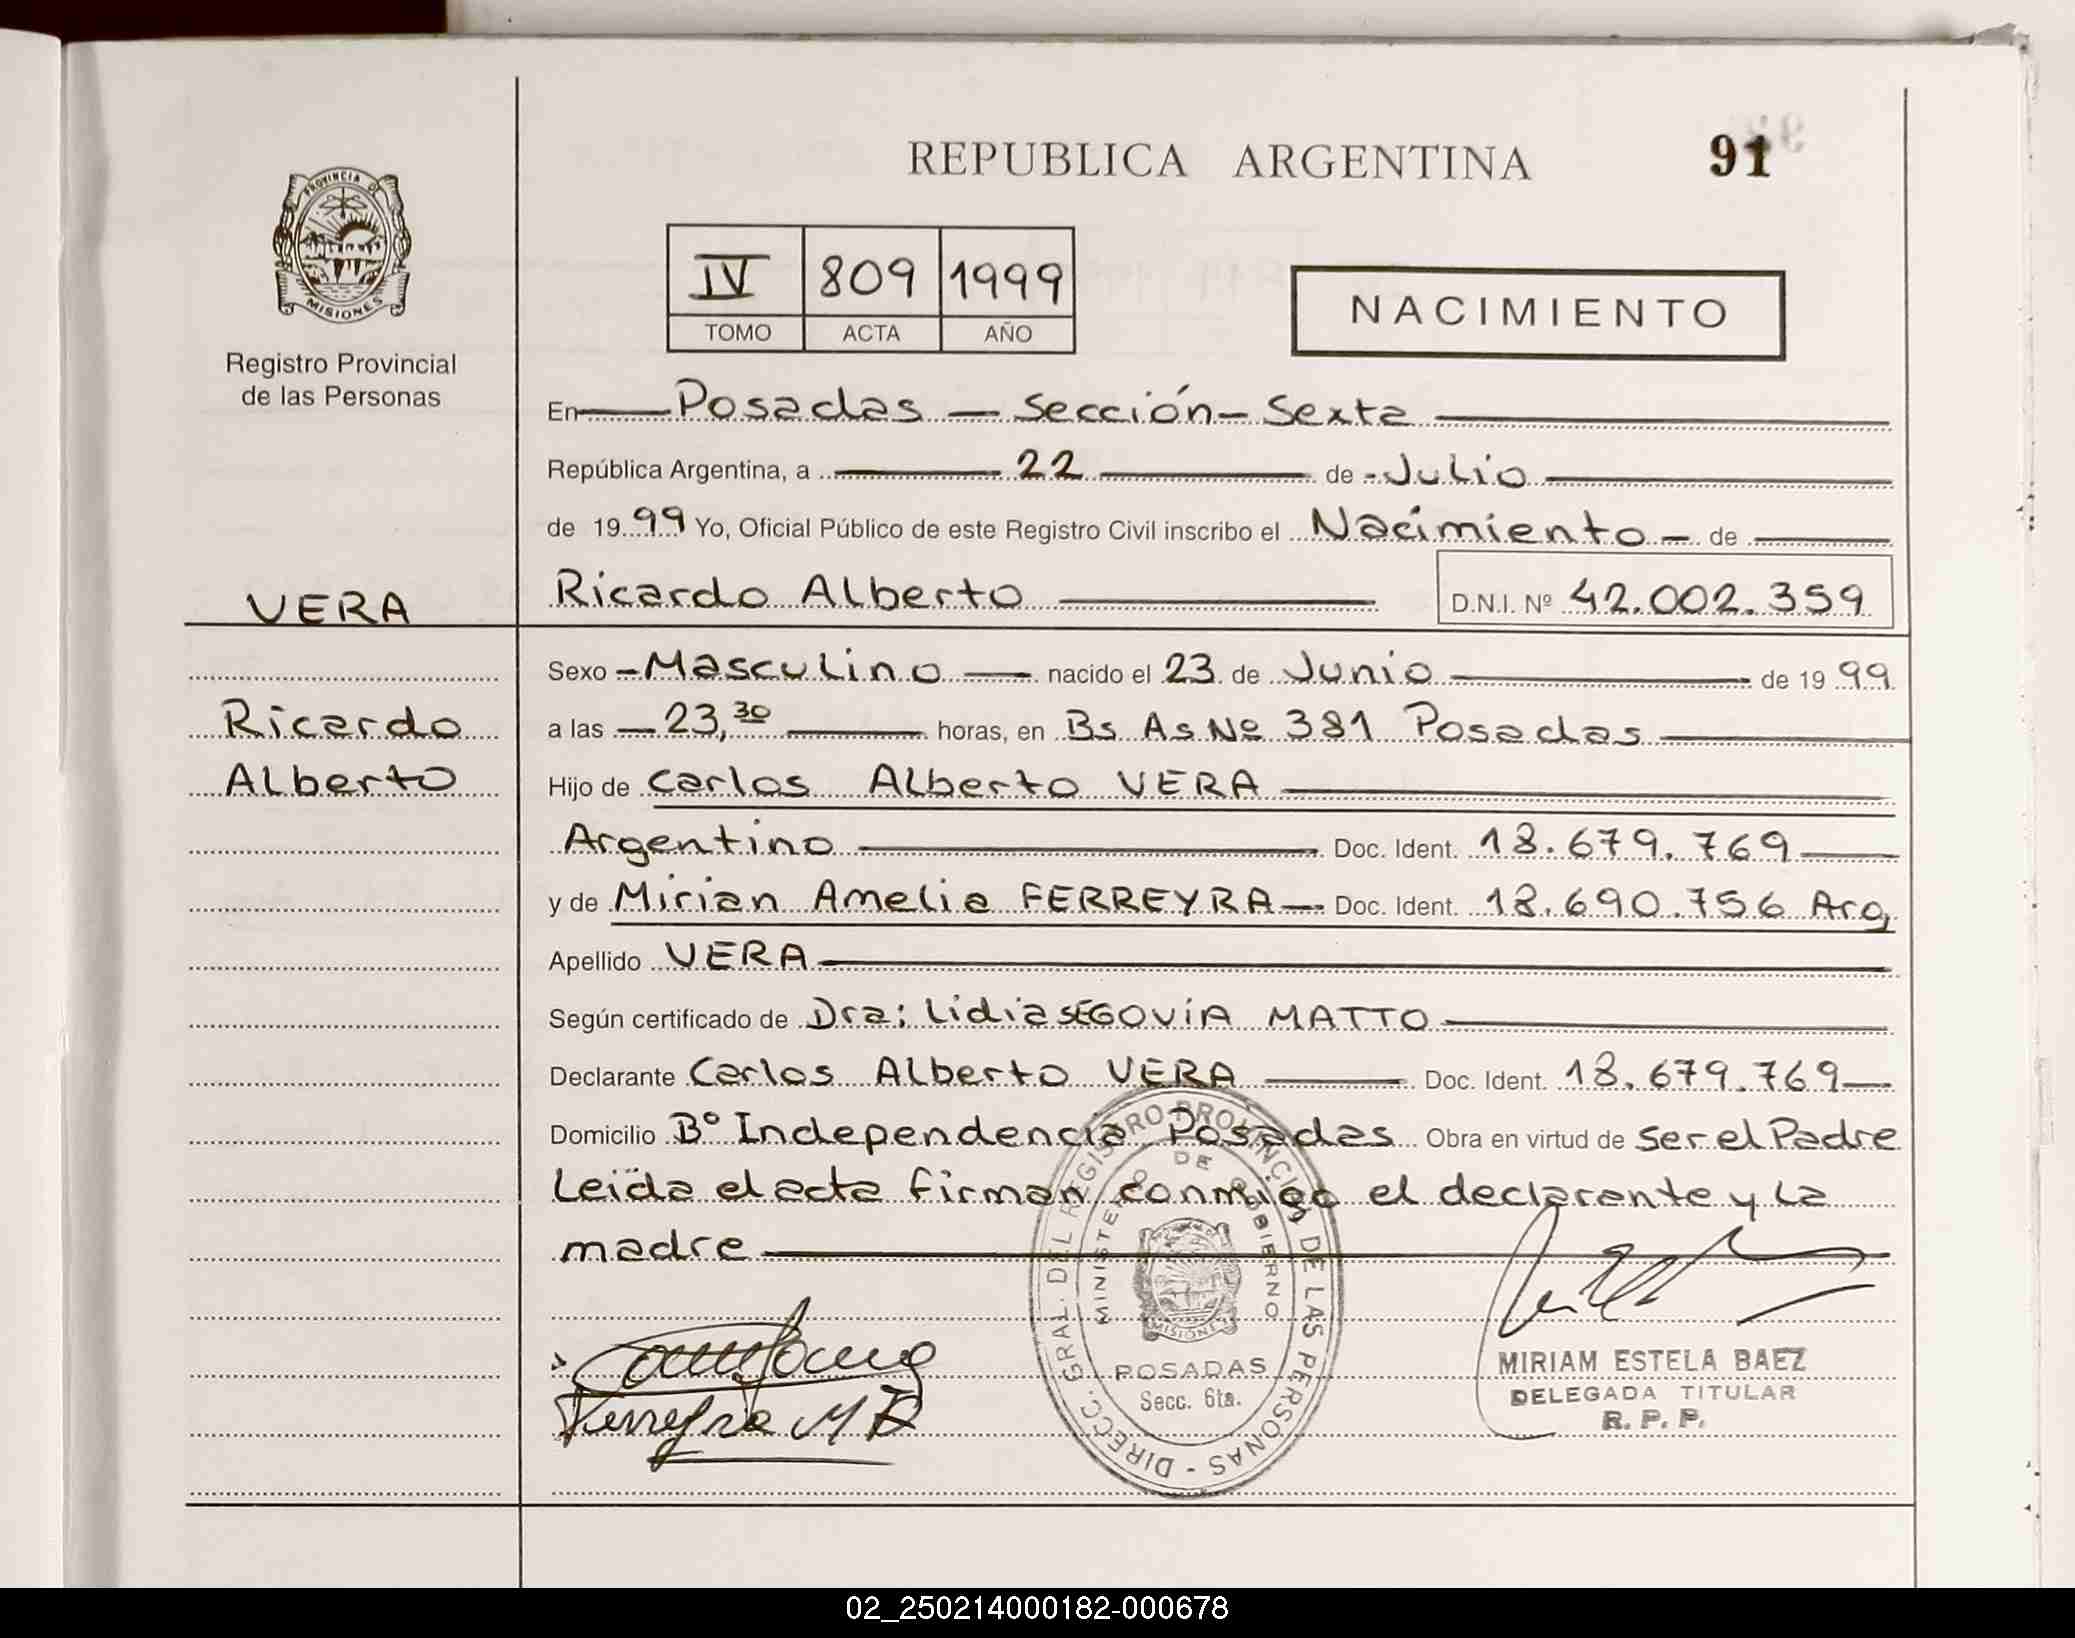 REPUBLICA ARGENTINA
91
PROVINCIA D
MISIONES
Registro Provincial
de las Personas
IV 809 1999
TOMO ACTA AÑO
NACIMIENTO
En Posadas - Sección - Sexta
República Argentina, a 22 de Julio
de 1999 Yo, Oficial Público de este Registro Civil inscribo el Nacimiento - de
VERA
Ricardo Alberto D.N.I. Nº 42.002.359
Sexo - Masculino nacido el 23 de Junio de 1999
Ricardo
a las 23,30 horas, en Bs As Nº 381 Posadas
Alberto
Hijo de Carlos Alberto VERA
Argentino Doc. Ident. 18.679.769
y de Mirian Amelia FERREYRA Doc. Ident. 18.690.756 Arg
Apellido VERA
Según certificado de Dra; Lidia SEGOVIA MATTO
Declarante Carlos Alberto VERA Doc. Ident. 18.679.769
Domicilio Bº Independencia Posadas Obra en virtud de ser el Padre
Leida el acta firman conmigo el declarante y la
madre
DIRECC. GRAL. DEL REGISTRO PROVINCIAL DE LAS PERSONAS -
MINISTERIO DE GOBIERNO
MISIONES
POSADAS
Secc. 6ta.
Ferreyra M A
MIRIAM ESTELA BAEZ
DELEGADA TITULAR
R. P. P.
02_250214000182-000678